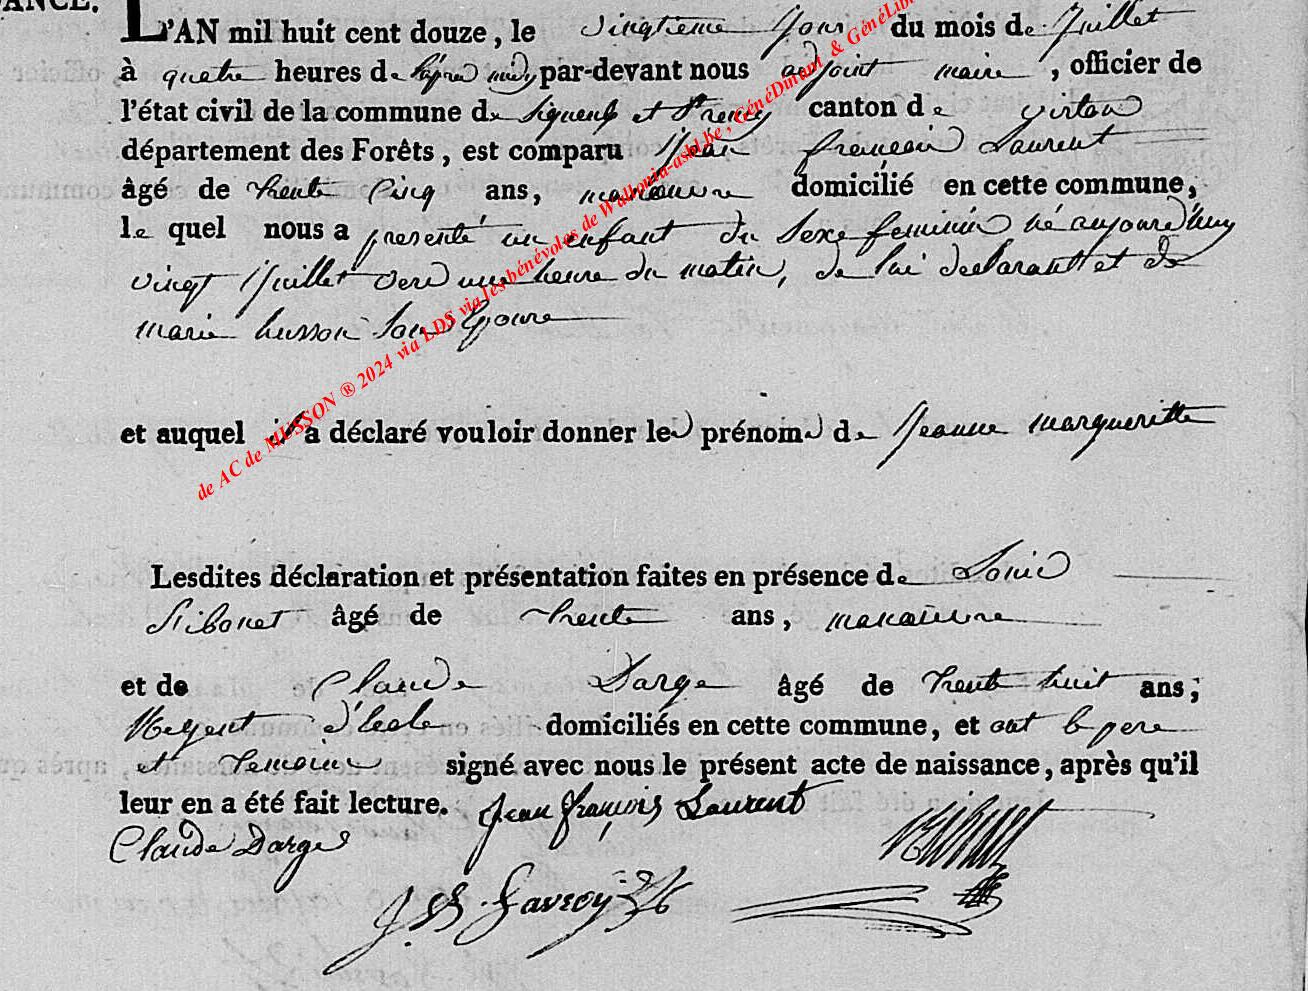 L'AN mil huit cent douze, le vingtieme jour du mois de juillet
à quatre heures de l'après midy par-devant nous adjoint maire, officier de
l'état civil de la commune de Signeulx et St remy canton de virton
département des Forêts, est comparu jean françois Laurent
âgé de trente cinq ans, manoeuvre domicilié en cette commune,
le quel nous a presenté un enfant du sexe feminin né aujourd'huy
vingt juillet vers une heure du matin, de lui declarant et de
marie husson son Epouse
et auquel il a déclaré vouloir donner le prénom de jeanne margueritte
Lesdites déclaration et présentation faites en présence de Louis
âgé de trente ans, manoeuvre
et de Claude Darge âgé de trente huit ans;
Regent d'Ecole domiciliés en cette commune, et ont le pere
et temoins signé avec nous le présent acte de naissance, après qu'il
leur en a été fait lecture. jean françois Laurent
Claude Darge
de AC de MUSSON ® 2024 via LDS via les bénévoles de Wallonia-asbl.be, GénéDinant & GénéLib